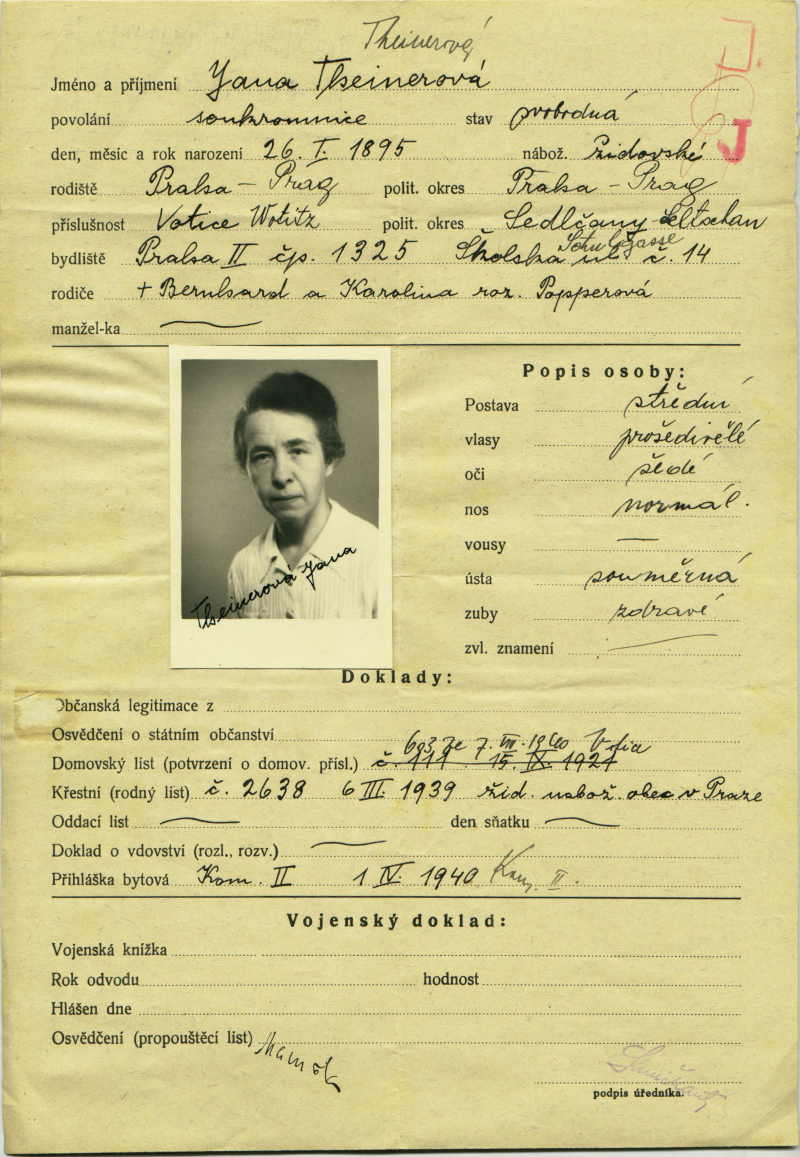 Theinerová
J.
Jméno a příjmení Jana Theinerová
povolání soukromnice stav svobodná
J
den, měsíc a rok narození 26. I. 1895 nábož. židovské
rodiště Praha - Prag polit. okres Praha - Prag
příslušnost Votice Wotitz polit. okres Sedlčany Seltschan
bydliště Praha II čp. 1325 Školská ul. č. 14
Schulgasse
rodiče + Bernhard a Karolina roz. Popperová
manžel-ka
Popis osoby:
Postava střední
vlasy prošedivělé
oči šedé
nos normál.
vousy —
ústa souměrná
zuby zdravé
zvl. znamení
Theinerová Jana
Doklady:
Občanská legitimace z
Osvědčení o státním občanství
603 ze 7. VIII. 1940 Votice
Domovský list (potvrzení o domov. přísl.) č. 111 15. IX. 1921
Křestní (rodný list) č. 2638 6 III. 1939 žid. nabož. obec v Praze
Oddací list den sňatku
Doklad o vdovství (rozl., rozv.)
Přihláška bytová Kom. II 1 IV. 1940 II.
Vojenský doklad:
Vojenská knížka
Rok odvodu hodnost
Hlášen dne
Osvědčení (propouštěcí list)
podpis úředníka.